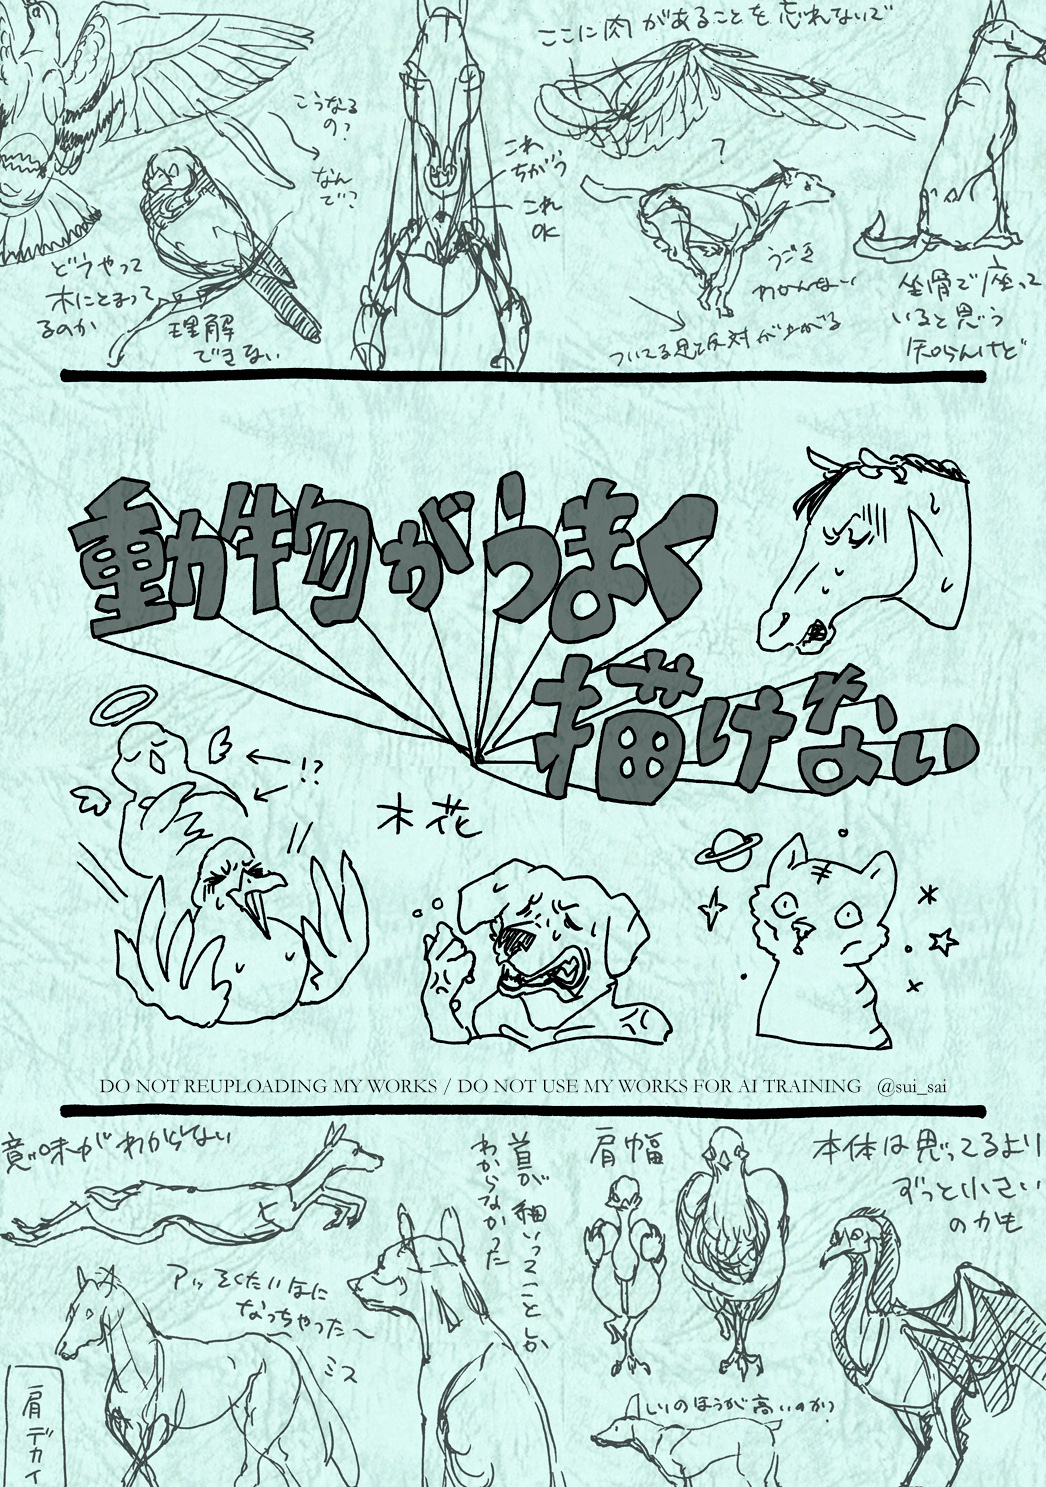 ここに肉があることを忘れないで
こうなる
の?
なん
で?
これ
ちがう
これ
OK
?
どうやって
木にとまって
るのか
理解
できない
うごき
わかんない
ついてる足と反対が上がる
坐骨で座って
いると思う
知らんけど
動物がうまく
描けない
!?
木花
DO NOT REUPLOADING MY WORKS / DO NOT USE MY WORKS FOR AI TRAINING @sui_sai
意味がわからない
首が細いってことしか
わからなかった
肩幅
本体は思ってるより
ずっと小さい
のかも
アッ そくたいほに
なっちゃった〜
ミス
肩デカイ
しりのほうが高いのか?